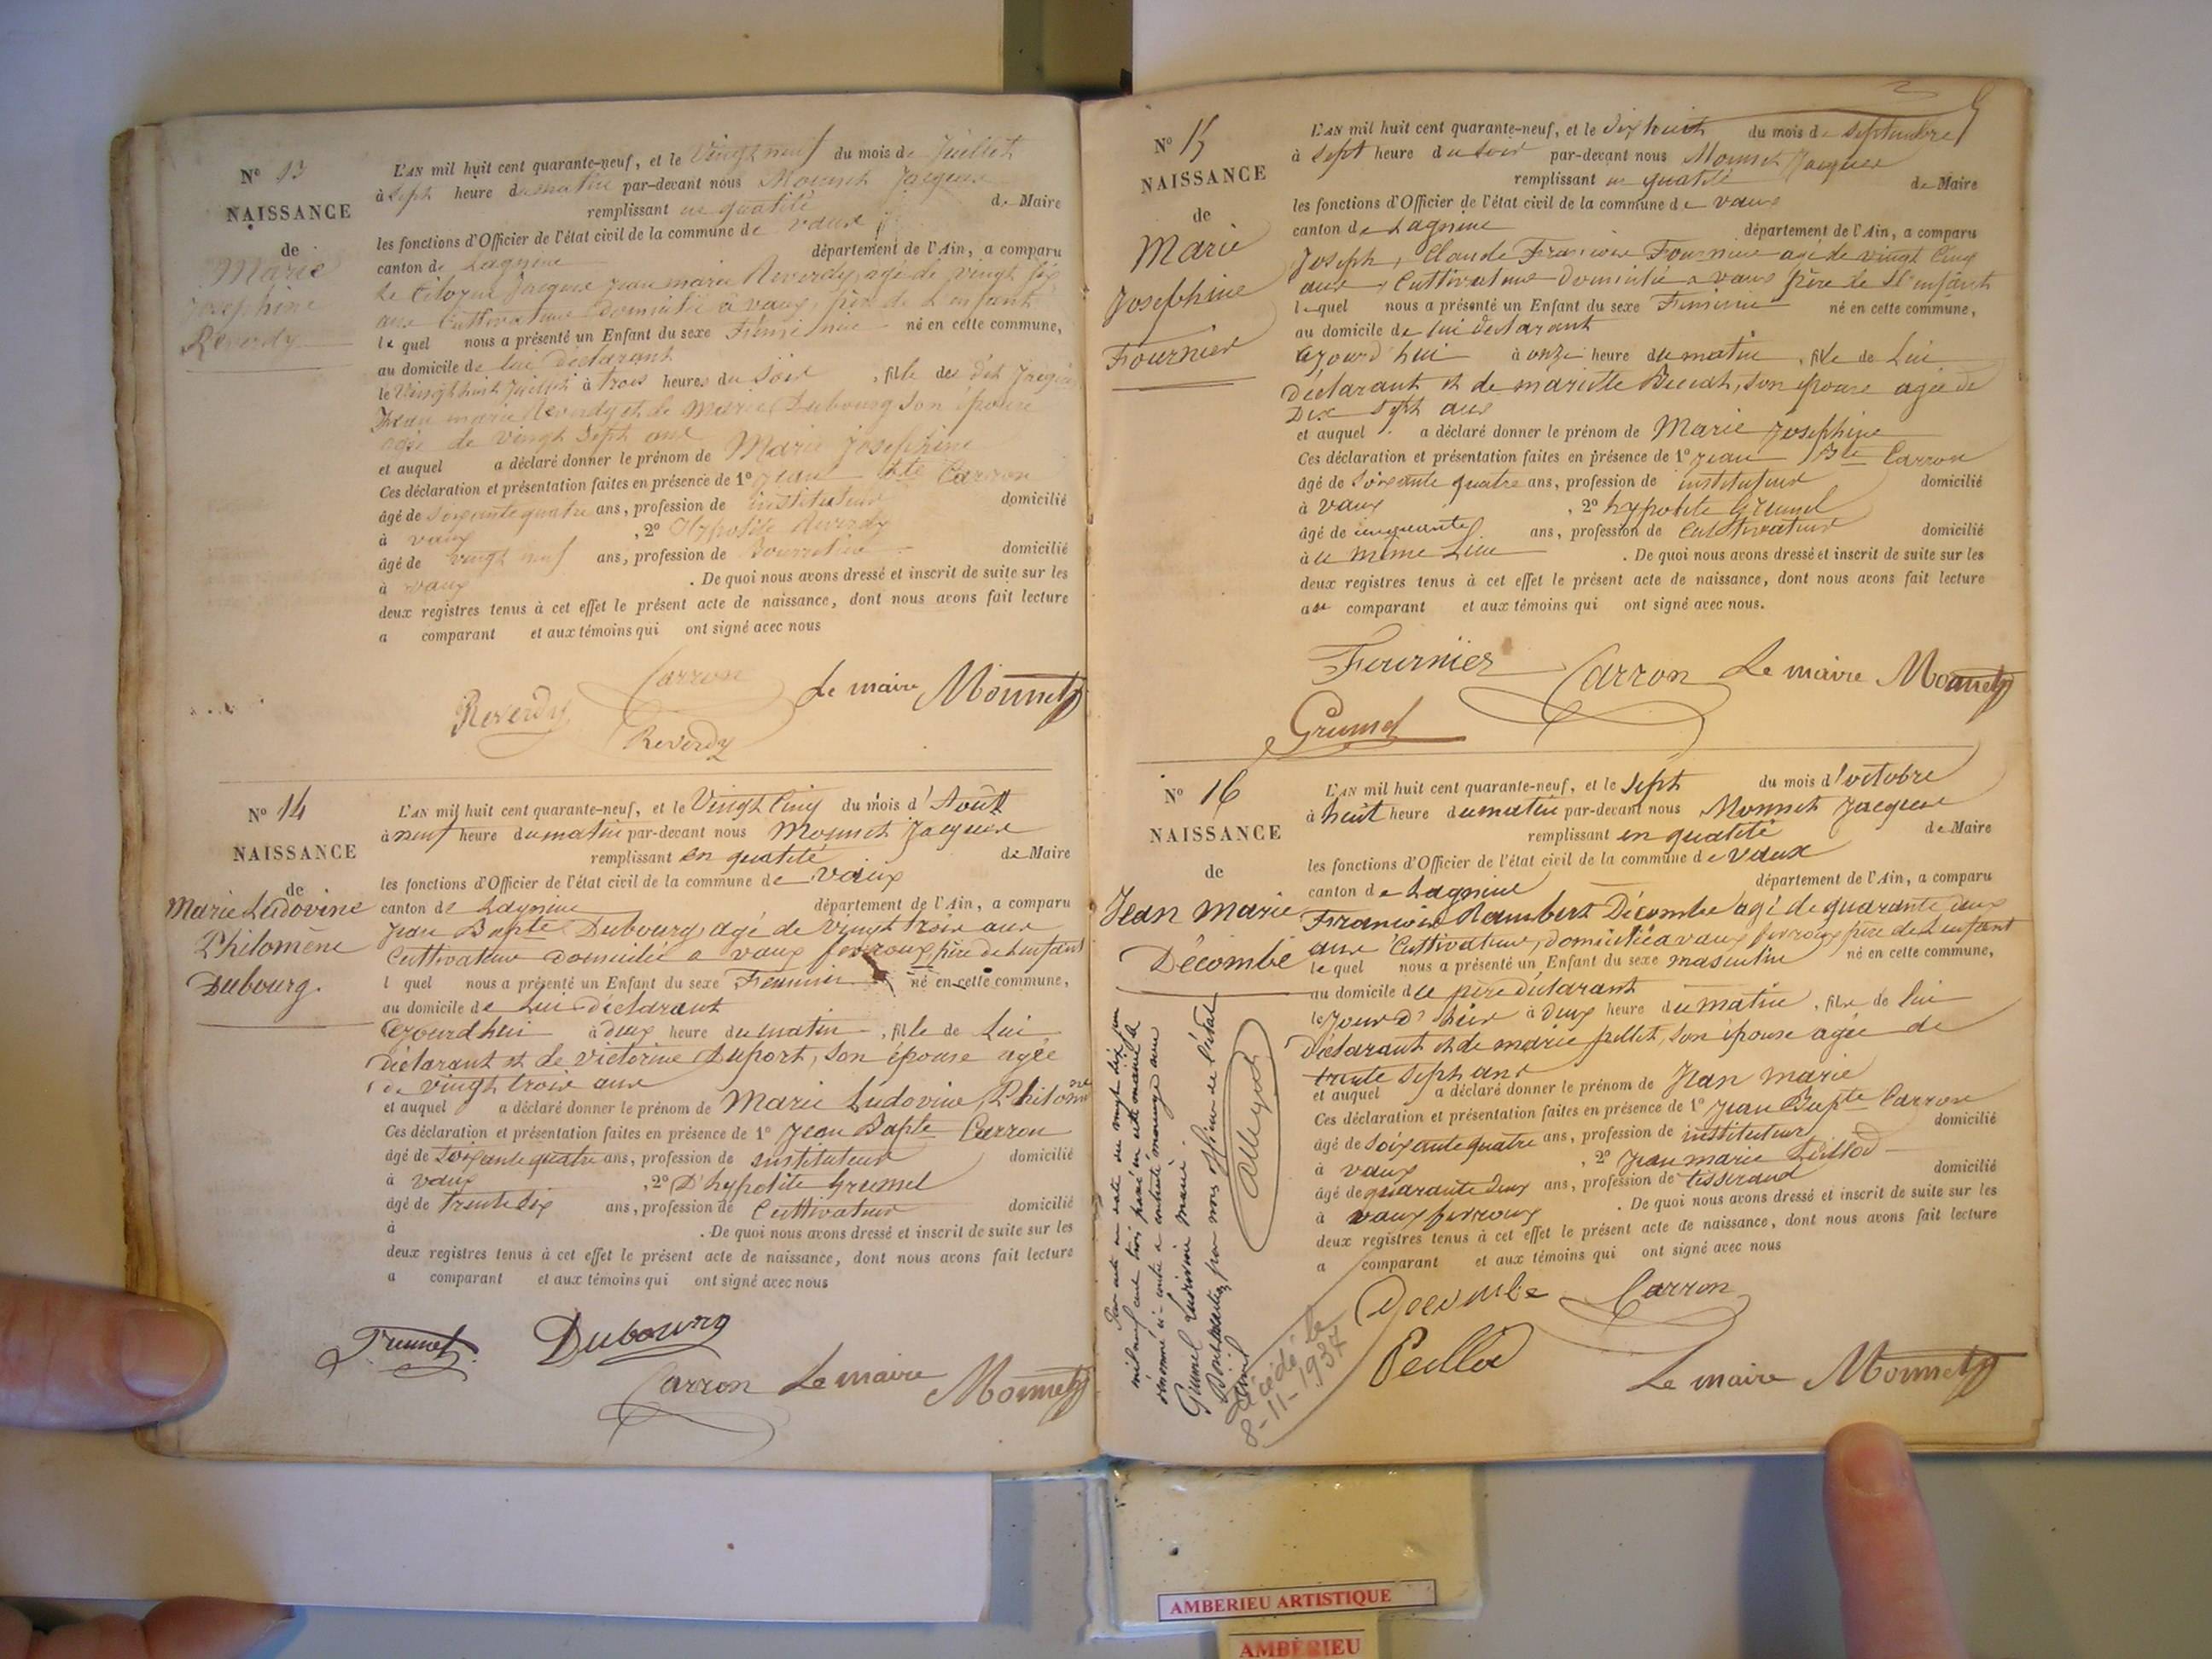 N° 13
NAISSANCE
de
Marie
Josephine
Reverdy
L'AN mil huit cent quarante-neuf, et le Vingt neuf du mois de Juillet
à Sept heure du matin par-devant nous Monnet Jacques
remplissant en qualité de Maire
les fonctions d'Officier de l'état civil de la commune de vaux
canton de Lagnieu département de l'Ain, a comparu
le Citoyen Jacques Jean marie Reverdy, agé de vingt six
ans Cultivateur Domicilié à vaux, père de L'enfant
le quel nous a présenté un Enfant du sexe Féminin né en cette commune,
au domicile de lui déclarant
le Vingt huit Juillet à trois heures du Soir, fille de dit Jacques
Jean marie Reverdy et de Marie Dubourg son épouse
agée de vingt Sept ans
et auquel a déclaré donner le prénom de Marie Josephine
Ces déclaration et présentation faites en présence de 1° Jean Bte Carron
âgé de Soixante quatre ans, profession de instituteur domicilié
à vaux , 2° Reverdy
âgé de vingt neuf ans, profession de domicilié
à vaux . De quoi nous avons dressé et inscrit de suite sur les
deux registres tenus à cet effet le présent acte de naissance, dont nous avons fait lecture
a comparant et aux témoins qui ont signé avec nous
Carron Le maire Monnet
Reverdy
Reverdy
N° 14
NAISSANCE
de
Marie Ludovine
Philomène
Dubourg.
L'AN mil huit cent quarante-neuf, et le Vingt Cinq du mois d'Août
à neuf heure du matin par-devant nous Monnet Jacques
remplissant en qualité de Maire
les fonctions d'Officier de l'état civil de la commune de Vaux
canton de Lagnieu département de l'Ain, a comparu
Jean Bapte Dubourg, agé de vingt trois ans
Cultivateur domicilié a vaux fevroux, père de L'enfant
l quel nous a présenté un Enfant du sexe Feminin né en cette commune,
au domicile de Lui Déclarant
Ajourd hui à deux heure du matin, fille de Lui
Déclarant et de victorine Duport, son épouse agée
de vingt trois ans
et auquel a déclaré donner le prénom de Marie Ludovine, Philomne
Ces déclaration et présentation faites en présence de 1° Jean Bapte Carron
âgé de Soixante quatre ans, profession de instituteur domicilié
à vaux , 2° D'hypolite Grumel
âgé de trente six ans, profession de Cultivateur domicilié
à . De quoi nous avons dressé et inscrit de suite sur les
deux registres tenus à cet effet le présent acte de naissance, dont nous avons fait lecture
a comparant et aux témoins qui ont signé avec nous
Grumel Dubourg
Carron Le maire Monnet
N° 15
NAISSANCE
de
Marie
Josephine
Fournier
L'AN mil huit cent quarante-neuf, et le dix huit du mois de Septembre
à Sept heure du Soir par-devant nous Monnet Jacques
remplissant en qualité de Maire
les fonctions d'Officier de l'état civil de la commune de vaux
canton de Lagnieu département de l'Ain, a comparu
Joseph, Claude Francois Fournier agé de vingt Cinq
ans, Cultivateur Domicilié a vaux père de L'enfant
lequel nous a présenté un Enfant du sexe Feminin né en cette commune,
au domicile de lui déclarant
Ajourd hui à onze heure du matin, fille de Lui
Déclarant et de mariette, son épouse agée de
Dix Sept ans
et auquel a déclaré donner le prénom de Marie Josephine
Ces déclaration et présentation faites en présence de 1° Jean Bte Carron
âgé de Soixante quatre ans, profession de instituteur domicilié
à vaux , 2° hypolite Grumel
âgé de cinquante ans, profession de Cultivateur domicilié
à u même Lieu . De quoi nous avons dressé et inscrit de suite sur les
deux registres tenus à cet effet le présent acte de naissance, dont nous avons fait lecture
au comparant et aux témoins qui ont signé avec nous.
Fournier Carron Le maire Monnet
Grumel
N° 16
NAISSANCE
de
Jean Marie
Décombe
L'AN mil huit cent quarante-neuf, et le Sept du mois d'octobre
à huit heure du matin par-devant nous Monnet Jacques
remplissant en qualité de Maire
les fonctions d'Officier de l'état civil de la commune de Vaux
canton de Lagnieu département de l'Ain, a comparu
Francois Rambert Décombe agé de quarante deux
ans Cultivateur, domicilié a vaux fevroux père de L'enfant
le quel nous a présenté un Enfant du sexe masculin né en cette commune,
au domicile du père déclarant
le Jour D'hier à Deux heure du matin, fils de lui
Déclarant et de marie pellet, son épouse agée de
trente Sept ans
et auquel a déclaré donner le prénom de Jean marie
Ces déclaration et présentation faites en présence de 1° Jean Bapte Carron
âgé de Soixante quatre ans, profession de instituteur domicilié
à vaux , 2° Jean marie
âgé de quarante deux ans, profession de tisserand domicilié
à vaux fevroux . De quoi nous avons dressé et inscrit de suite sur les
deux registres tenus à cet effet le présent acte de naissance, dont nous avons fait lecture
a comparant et aux témoins qui ont signé avec nous
Decombe Carron
Le maire Monnet
Par acte en date du vingt six juin
mil neuf cent trois passé en cette mairie le
dénommé ci-contre a contracté mariage avec
Grumel Ludivine marie.
par nous officier de l'état
civil
Décédé le
8-11-1937
AMBERIEU ARTISTIQUE
AMBÉRIEU